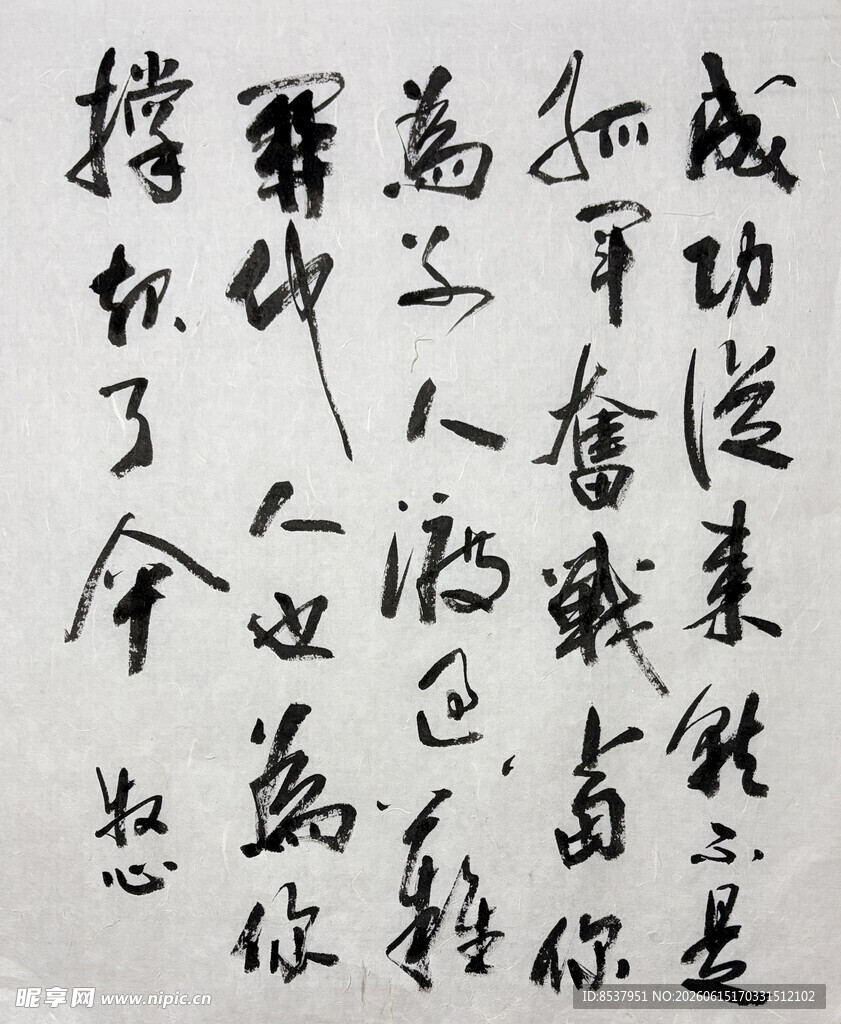 成功從來就不是
孤軍奮戰當你
為人渡過難
關他人也為你
撐起了伞
牧心
昵享网 www.nipic.cn
ID:8537951 NO:20260615170331512102